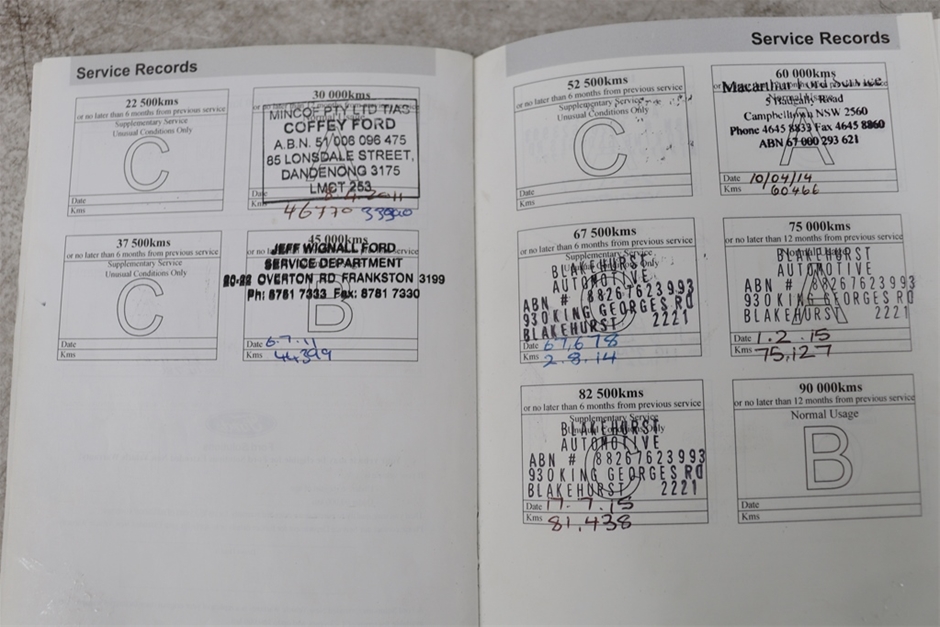 Service Records
22 500kms
or no later than 6 months from previous service
Supplementary Service
Unusual Conditions Only
C
Date
Kms
30 000kms
MINCOF PTY LTD T/AS
COFFEY FORD
A.B.N. 51 006 096 475
85 LONSDALE STREET,
DANDENONG 3175
LMCT 253
Date
Kms 46770
37 500kms
or no later than 6 months from previous service
Supplementary Service
Unusual Conditions Only
C
Date
Kms
45 000kms
JEFF WIGNALL FORD
SERVICE DEPARTMENT
20-22 OVERTON RD FRANKSTON 3199
Ph: 8781 7333 Fax: 8781 7330
B
Date 6.7.11
Kms 44399
Service Records
52 500kms
or no later than 6 months from previous service
Supplementary Service
Unusual Conditions Only
C
Date
Kms
60 000kms
Macarthur Ford Service
Campbelltown NSW 2560
Phone 4645 8833 Fax 4645 8860
ABN 67 000 293 621
A
Date 10/04/14
Kms 60466
67 500kms
or no later than 6 months from previous service
BLAKEHURST
AUTOMOTIVE
ABN # 88267623993
930 KING GEORGES RD
BLAKEHURST 2221
Date 67,678
Kms 2.8.14
75 000kms
or no later than 12 months from previous service
BLAKEHURST
AUTOMOTIVE
ABN # 88267623993
930 KING GEORGES RD
BLAKEHURST 2221
A
Date 1.2.15
Kms 75,127
82 500kms
or no later than 6 months from previous service
Supplementary Service
BLAKEHURST
AUTOMOTIVE
ABN # 88267623993
930 KING GEORGES RD
BLAKEHURST 2221
Date 17.7.15
Kms 81,438
90 000kms
or no later than 12 months from previous service
Normal Usage
B
Date
Kms